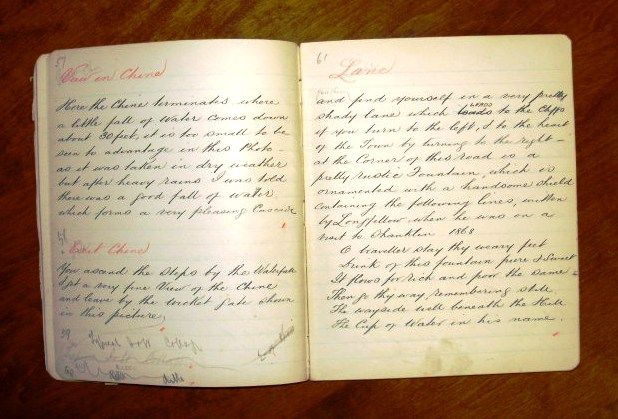 57
View in Chine
Here the Chine terminates where
a little fall of Water comes down
about 30 feet, it is too small to be
seen to advantage in this Photo -
as it was taken in dry weather
but after heavy rains I was told
there was a good fall of water
which forms a very pleasing Cascade
58
Exit Chine
You ascend the steps by the Waterfall
& get a very fine View of the Chine
and leave by the wicket gate shewn
in this picture,
59
60
61
Lane
and find yourself in a very pretty
shady lane which leads to the Cliffs
if you turn to the left, & to the heart
of the Town by turning to the right -
at the Corner of this road is a
pretty rustic Fountain, which is
ornamented with a handsome shield
containing the following lines, written
by Longfellow when he was on a
visit to Shanklin 1868
O traveller stay thy weary feet
Drink of this fountain pure & Sweet
It flows for rich and poor the same
Then go thy way, remembering still
The wayside well beneath the Hill
The Cup of Water in his name.